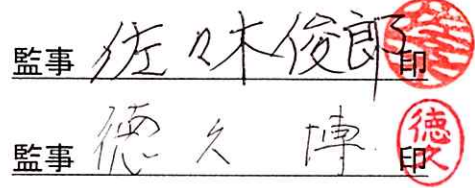 監事 佐々木俊郎 印
監事 徳久 博 印
徳久